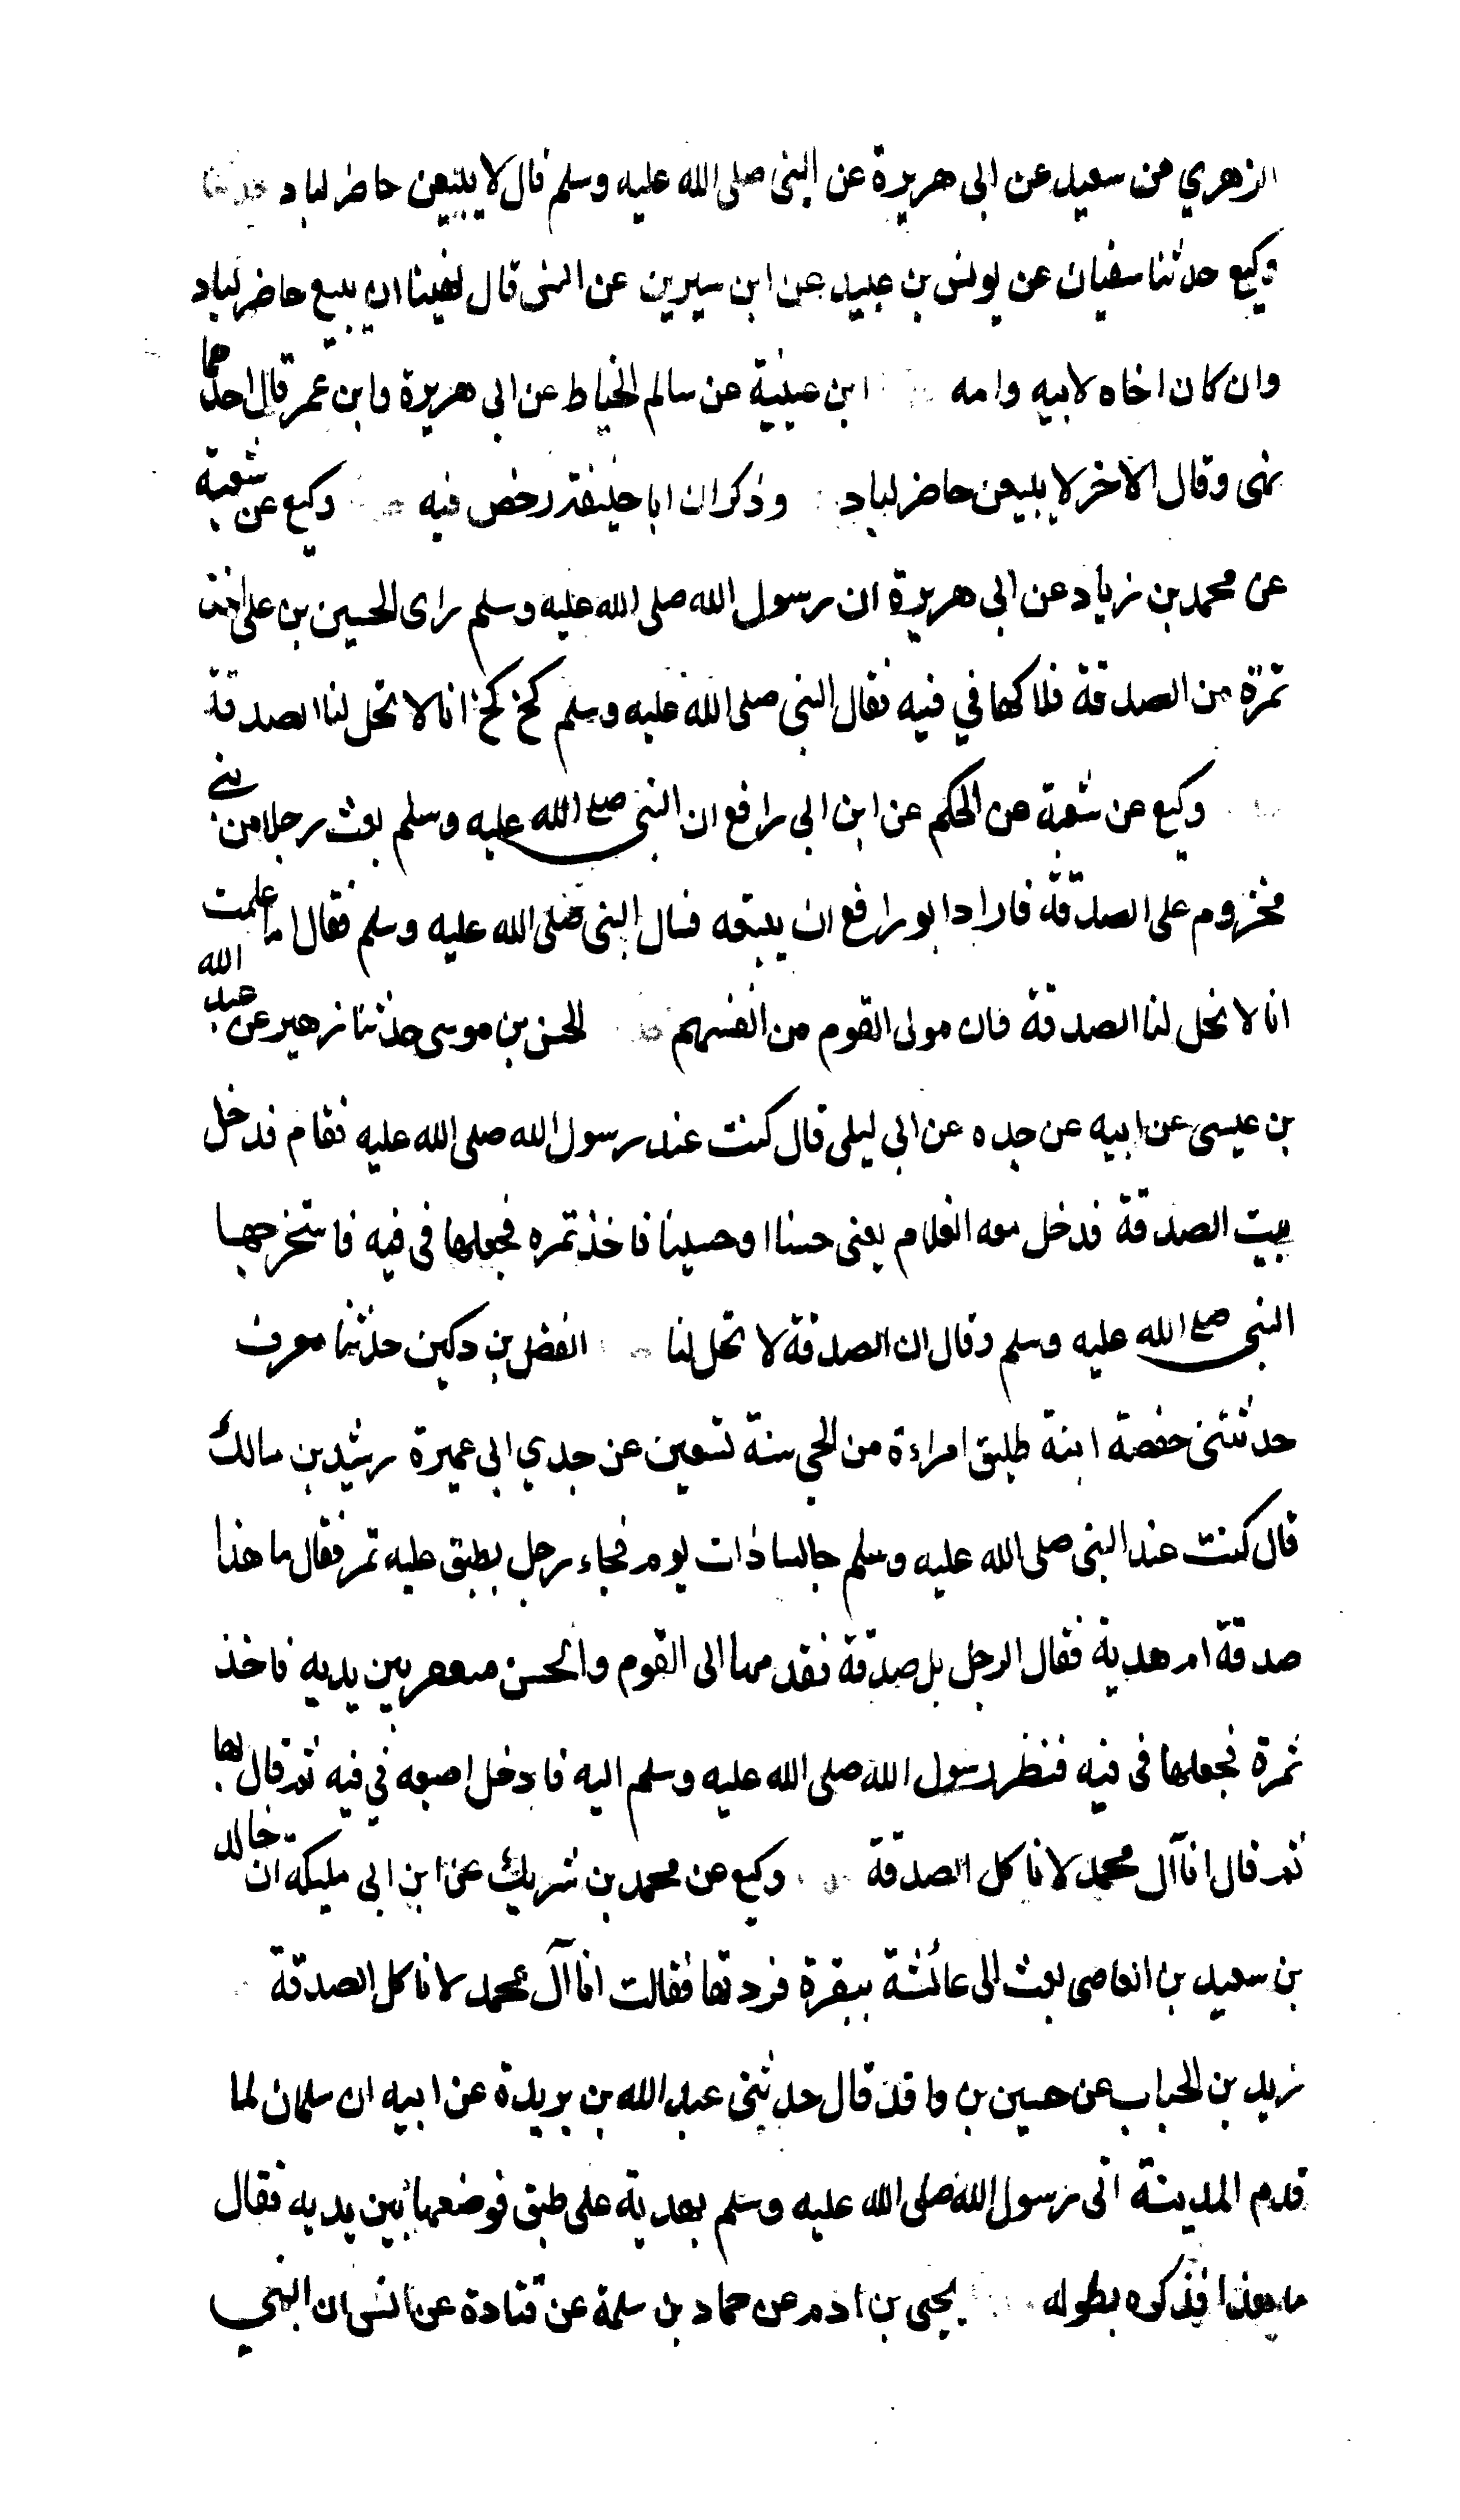 الزهري عن سعيد عن ابى هريرة عن النبى صلى الله عليه وسلم قال لا يبيعن حاضر لباد حدثنا
وكيع حدثنا سفيان عن يونس بن عبيد عن ابن سيرين عن انس قال نهينا ان يبيع حاضر لباد
وان كان اخاه لابيه وامه ابن عيينة عن سالم الخياط عن ابى هريرة وابن عمر قال احدهما
نهى وقال الآخر لا يبيعن حاضر لباد وذكر ان ابا حنيفة رخص فيه وكيع عن شعبة
عن محمد بن زياد عن ابى هريرة ان رسول الله صلى الله عليه وسلم راى الحسين بن على اخذ
تمرة من الصدقة فلاكها في فيه فقال النبى صلى الله عليه وسلم كخ كخ انا لا تحل لنا الصدقة
وكيع عن شعبة عن الحكم عن ابن ابى رافع ان النبى صلى الله عليه وسلم بعث رجلا من بني
مخزوم على الصدقة فاراد ابو رافع ان يتبعه فسال النبى صلى الله عليه وسلم فقال اما علمت
انا لا تحل لنا الصدقة فان مولى القوم من انفسهم الحسن بن موسى حدثنا زهير عن عبد الله
بن عيسى عن ابيه عن جده عن ابى ليلى قال كنت عند رسول الله صلى الله عليه فقام فدخل
بيت الصدقة فدخل معه الغلام يعنى حسنا او حسينا فاخذ تمره فجعلها فى فيه فاستخرجها
النبى صلى الله عليه وسلم وقال ان الصدقة لا تحل لنا الفضل بن دكين حدثنا معرف
حدثتنى حفصة ابنة طليق امراءة من الحي سنة تسعين عن جدي ابى عميرة رشيد بن مالك
قال كنت عند النبى صلى الله عليه وسلم جالسا ذات يوم فجاء رجل بطبق عليه تمر فقال ما هذا
صدقة ام هدية فقال الرجل بل صدقة فقدمها الى القوم والحسن متعفر بين يديه فاخذ
تمرة فجعلها فى فيه فنظر رسول الله صلى الله عليه وسلم اليه فادخل اصبعه في فيه ثم قال بها
ثم قال انا آل محمد لا ناكل الصدقة وكيع عن محمد بن شريك عن ابن ابى مليكة ان خالد
بن سعيد بن العاصى بعث الى عائشة ببقرة فردتها فقالت انا آل محمد لا ناكل الصدقة
زيد بن الحباب عن حسين بن واقد قال حدثنى عبد الله بن بريدة عن ابيه ان سلمان لما
قدم المدينة اتى رسول الله صلى الله عليه وسلم بهدية على طبق فوضعها بين يديه فقال
ما هذا فذكره بطوله يحيى بن ادم عن حماد بن سلمة عن قتادة عن انس ان النبي